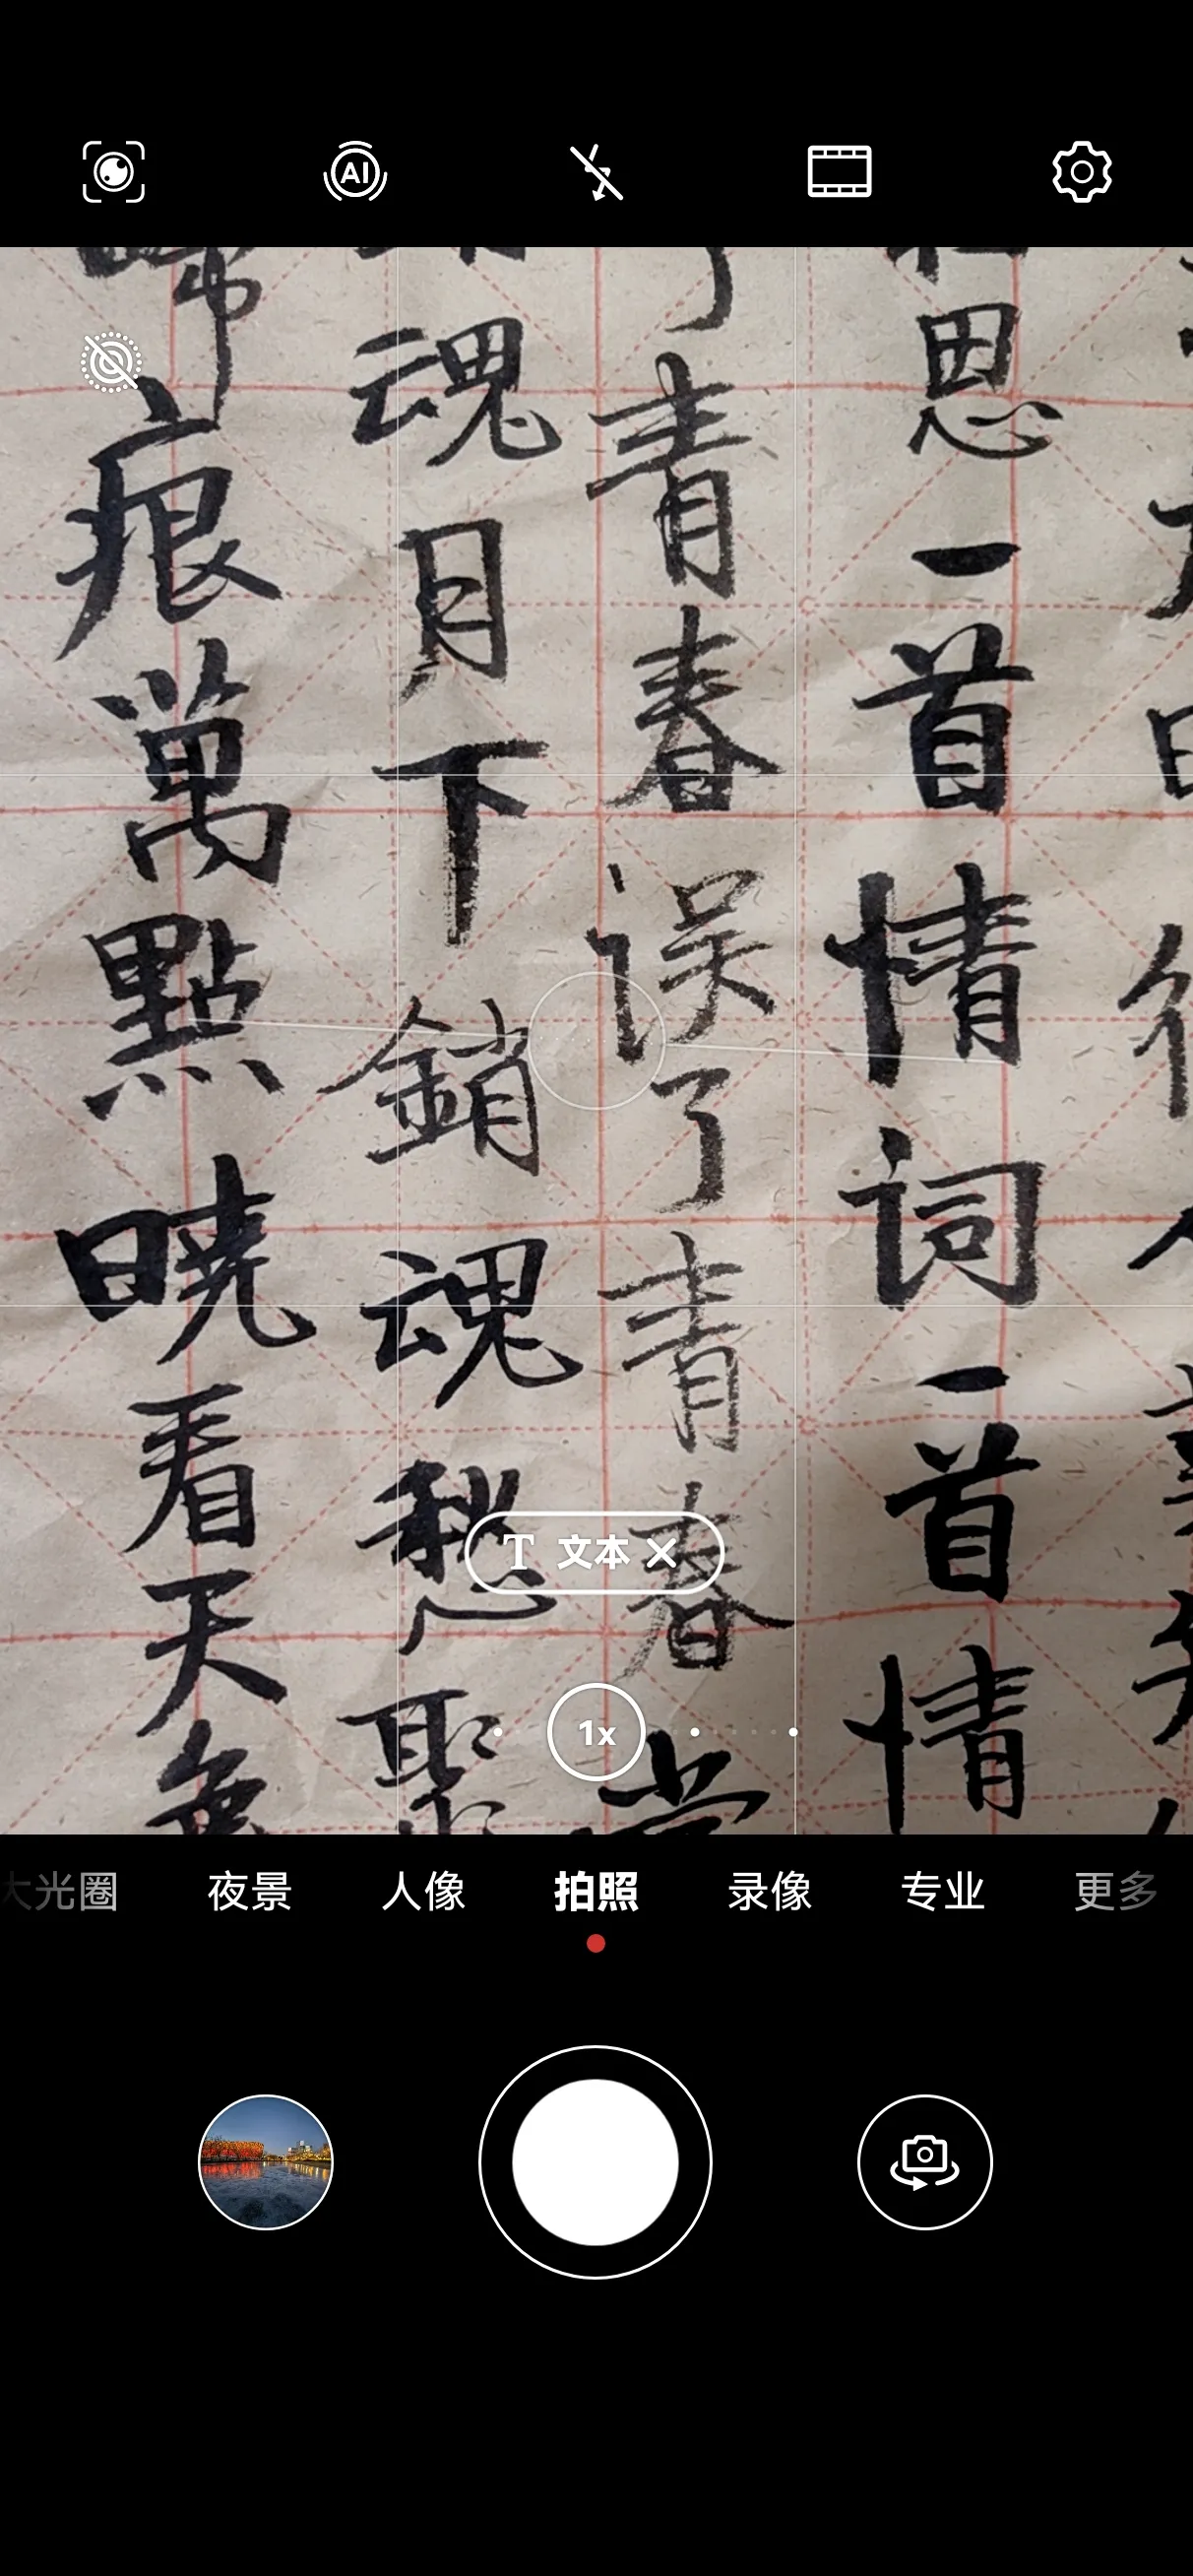 思一首情词一首情
了青春误了青春
魂月下銷魂愁聚
痕萬點暁看天色
T 文本 ×
1x
大光圈 夜景 人像 拍照 录像 专业 更多
AI